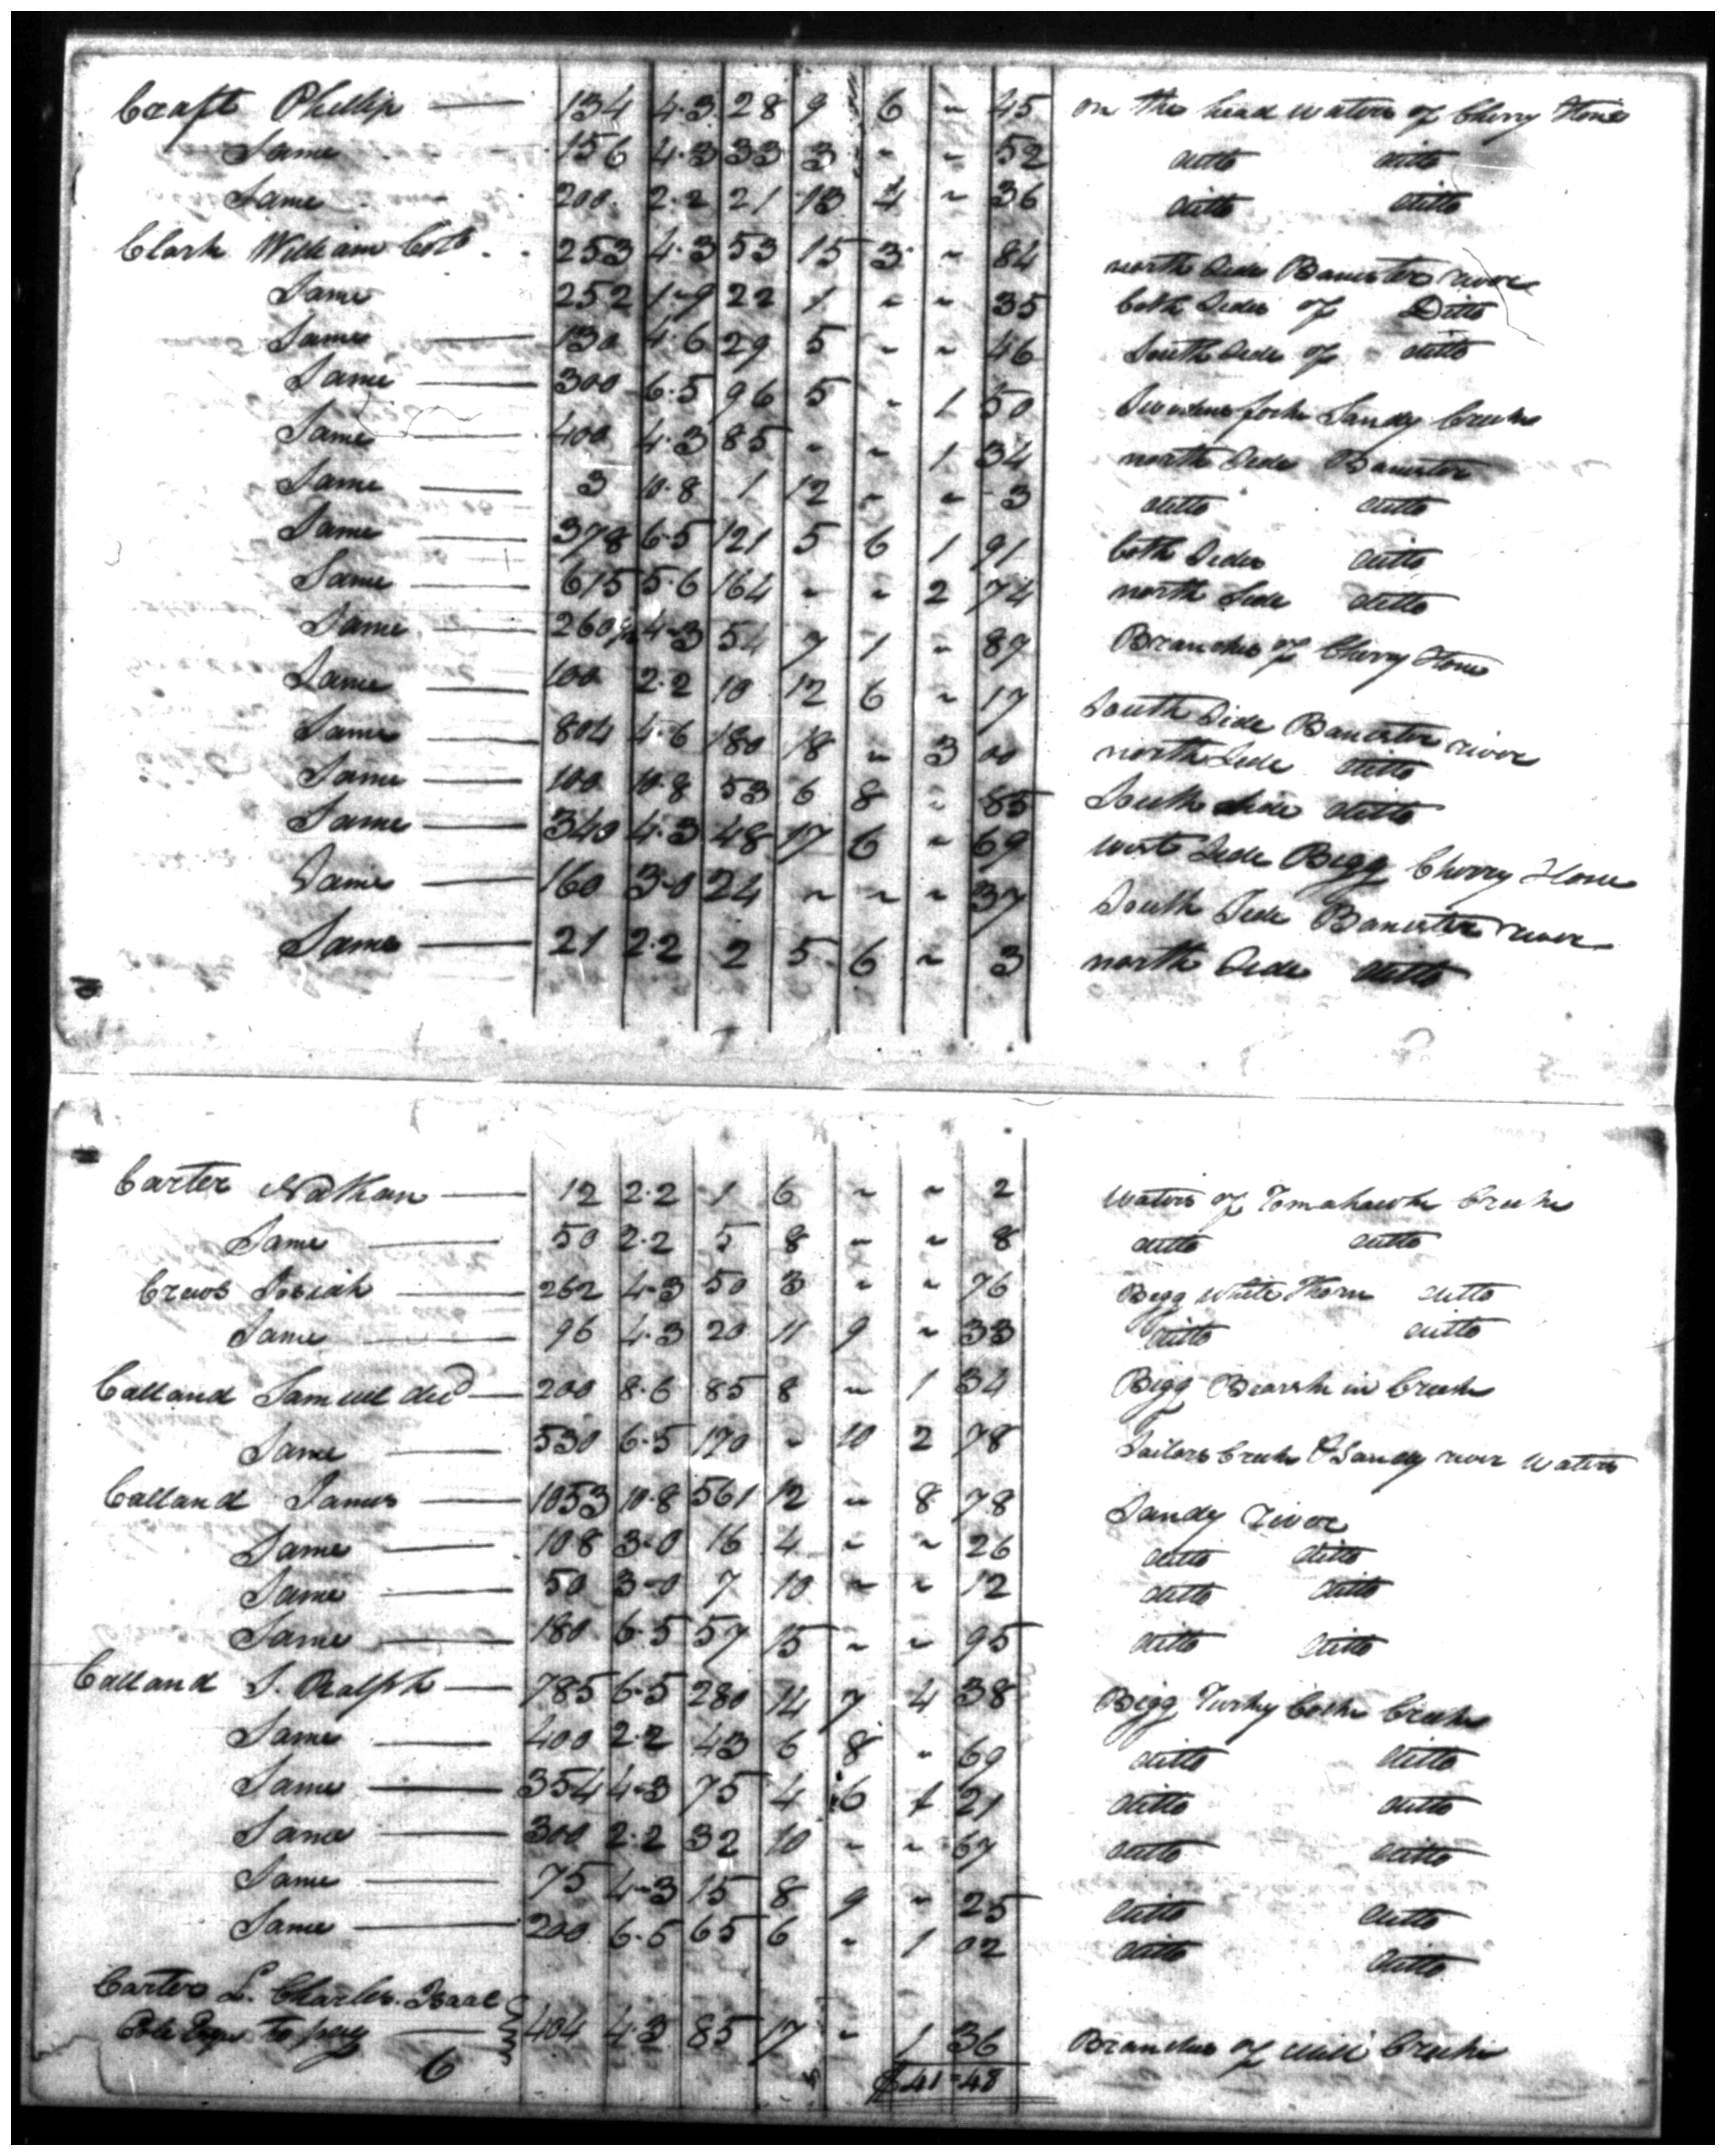 Craft Phillip — 134 4.3 28 9 6 ~ 45 on the head waters of Cherry Stone
Same 156 4.3 33 3 ~ ~ 52 ditto ditto
Same 200 2.2 21 13 4 ~ 36 ditto ditto
Clark William Colo 253 4.3 53 15 3 ~ 84 north Side Banister river
Same 252 1-9 22 1 ~ ~ 35 both Sides of Ditto
Same — 130 4.6 29 5 ~ ~ 46 South Side of ditto
Same — 300 6.5 96 5 ~ 1 50 fork Sandy Creek
Same — 400 4.3 85 ~ ~ 1 34 north Side Banister
Same — 3 10.8 1 12 ~ ~ 3 ditto ditto
Same — 378 6.5 121 5 6 1 91 both Sides ditto
Same — 615 5.6 164 ~ ~ 2 74 north Side ditto
Same — 260 4-3 54 7 1 ~ 89 Branches of Cherry Stone
Same — 100 2.2 10 12 6 ~ 17 South Side Banister river
Same — 804 4.6 180 18 ~ 3 00 north Side ditto
Same — 100 10.8 53 6 8 ~ 85 South Side ditto
Same — 340 4.3 48 17 6 ~ 69 west Side Bigg Cherry Stone
Same — 160 3-0 24 ~ ~ ~ 37 South Side Banister river
Same — 21 2.2 2 5 6 ~ 3 north Side ditto
Carter Nathan — 12 2.2 1 6 ~ ~ 2 Waters of Tomahawk Creek
Same — 50 2.2 5 8 ~ ~ 8 ditto ditto
Crews Josiah — 262 4.3 50 3 ~ ~ 76 Bigg White Thorn ditto
Same — 96 4.3 20 11 9 ~ 33 ditto ditto
Calland Samuel decd — 200 8.6 85 8 ~ 1 34 Bigg Bearskin Creek
Same — 530 6.5 170 ~ 10 2 78 Sailors Creek & Sandy river waters
Calland James — 1053 10.8 561 12 ~ 8 78 Sandy river
Same — 108 3-0 16 4 ~ ~ 26 ditto ditto
Same — 50 3-0 7 10 ~ ~ 12 ditto ditto
Same — 180 6.5 57 15 ~ ~ 95 ditto ditto
Calland S. Ralph — 785 6.5 280 14 7 4 38 Bigg Turkey Cock Creek
Same — 400 2.2 43 6 8 ~ 69 ditto ditto
Same — 354 4-3 75 4 6 1 21 ditto ditto
Same — 300 2.2 32 10 ~ ~ 67 ditto ditto
Same — 75 4-3 15 8 9 ~ 25 ditto ditto
Same — 200 6.5 65 6 ~ 1 02 ditto ditto
Carter L. Charles. Isaac
Cole to pay — 404 4.3 85 17 ~ 1 36 Branches of mill Creek
6 $41-48